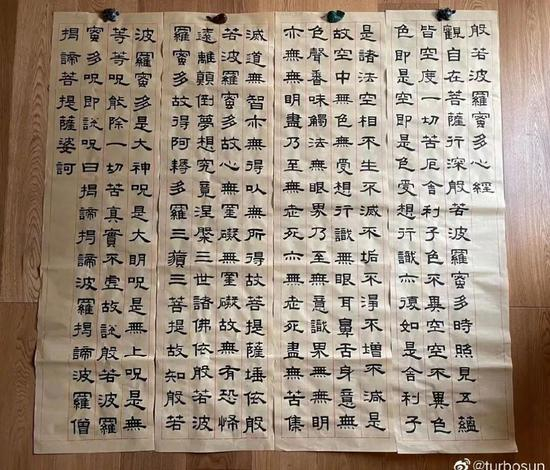 般若波羅蜜多心經
觀自在菩薩行深般若波羅蜜多時照見五蘊
皆空度一切苦厄舍利子色不異空空不異色
色即是空即是色受想行識亦復如是舍利子
是諸法空相不生不滅不垢不淨不增不減是
故空中無色無受想行識無眼耳鼻舌身意無
色聲香味觸法無眼界乃至無意識界無無明
亦無無明盡乃至無老死亦無老死盡無苦集
滅道無智亦無得以無所得故菩提薩埵依般
若波羅蜜多故心無罣礙無罣礙故無有恐怖
遠離顛倒夢想究竟涅槃三世諸佛依般若波
羅蜜多故得阿耨多羅三藐三菩提故知般若
波羅蜜多是大神呪是大明呪是無上呪是無
等等呪能除一切苦真實不虛故說般若波羅
蜜多呪即說呪曰揭諦揭諦波羅揭諦波羅僧
揭諦菩提薩婆訶
@turbosun